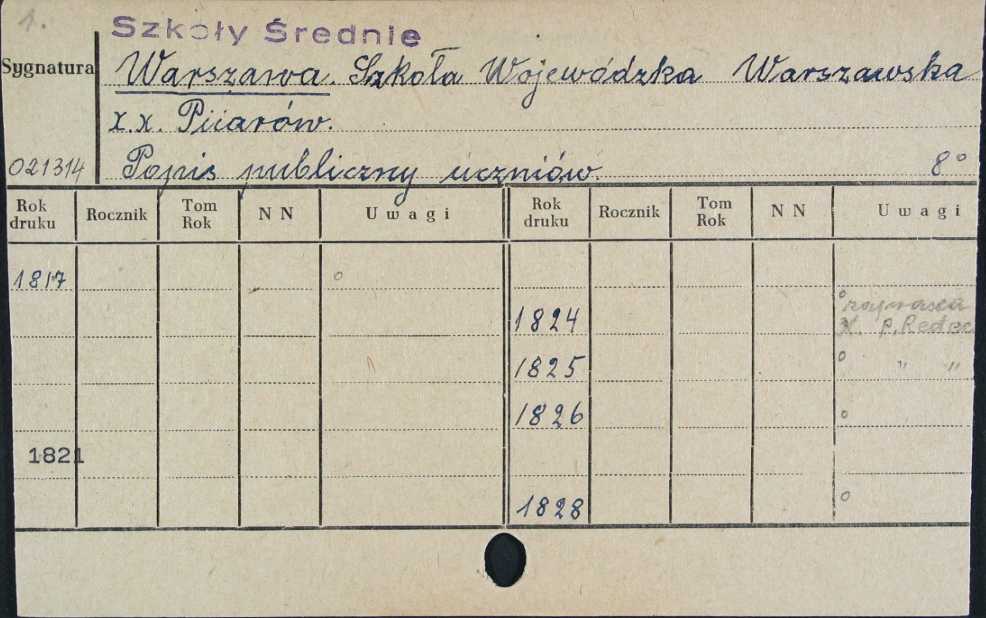 1.
Szkoły Średnie
Sygnatura
Warszawa. Szkoła Wojewódzka Warszawska
x.x. Pijarów.
021314 Popis publiczny uczniów 8°
Rok druku Rocznik Tom Rok N N Uwagi Rok druku Rocznik Tom Rok N N Uwagi
1817 o
o
1824 X. P.
1825 o " "
1826 o
1821
1828 o